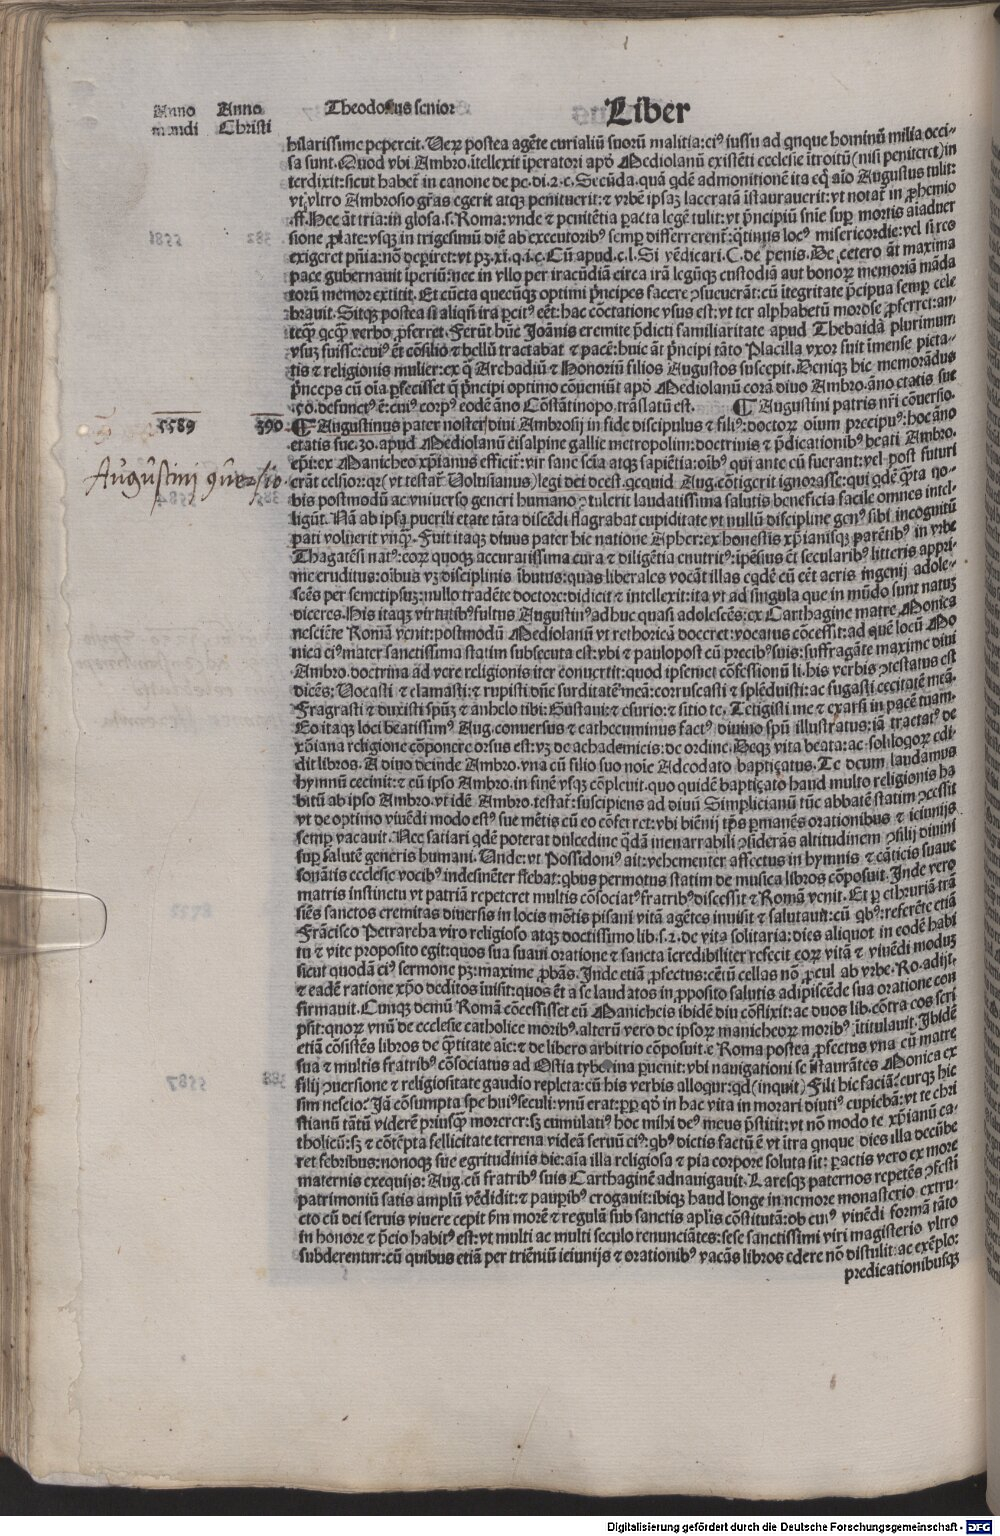 Anno Anno Theodosius senior Liber
mundi Christi
hilarissime pepercit. Verũ postea agẽte curialiũ suorũ malitia: eiꝰ iussu ad qnque hominũ milia occi-
sa sunt. Quod vbi Ambro. ĩtellexit ĩperatori apd̃ Mediolanũ existẽti ecclesie ĩtroitũ (nisi peniteret) in
terdixit: sicut habet̃ in canone de pe. di. 2. c. Secũda. quã qdẽ admonitionẽ ita eq̃ aĩo Augustus tulit:
vt vltro Ambrosio gr̃as egerit atqꝫ penituerit: ⁊ vrbẽ ipsaꝫ laceratã ĩstaurauerit: vt notat̃ in ꝓhemio
ff. Hec ãt tria: in glosa. s. Roma: vnde ⁊ penitẽtia ꝑacta legẽ tulit: vt p̃ncipiũ sñie suꝑ mortis aiaduer
sione ꝓlate: vsqꝫ in trigesimũ diẽ ab executoribꝰ semꝑ differrerent̃: q̃tinus locꝰ misericordie: vel si res
exigeret pñia: nõ deꝑiret: vt pꝫ. xi. q. i. c. Cũ apud. c. l. Si vẽdicari. C. de penis. De cetero ãt maxima
pace gubernauit ĩperiũ: nec in vllo per iracũdiã circa irã legũqꝫ custodiã aut bonoꝝ memoriã mãda
torũ memor extitit. Et cũcta quecũqꝫ optimi p̃ncipes facere ꝯsueuerãt: cũ ĩtegritate p̃cipua semꝑ cele
brauit. Sitqꝫ postea si aliqñ ira ꝑcitꝰ eẽt: hac cõctatione vsus est: vt ter alphabetũ morose ꝓferret: an-
teq̃ qcq̃ verbo ꝓferret. Ferũt hũc Joãnis eremite p̃dicti familiaritate apud Thebaidã plurimum
vsuꝫ fuisse: cuiꝰ ẽt cõsilio ⁊ bellũ tractabat ⁊ pacẽ: huic ãt p̃ncipi tãto Placilla vxor fuit ĩmense pieta-
tis ⁊ religionis mulier: ex q̃ Archadiũ ⁊ Honoriũ filios Augustos suscepit. Deniqꝫ hic memorãdus
p̃nceps cũ oĩa ꝑfecisset q̃ p̃ncipi optimo cõueniũt apd̃ Mediolanũ corã diuo Ambro. ãno etatis sue
.50. defunctꝰ ẽ: cuiꝰ corpꝰ eodẽ ãno Cõstãtinopo. trãslatũ est. ¶ Augustini patris nr̃i cõuersio.
5589 390 ¶ Augustinus pater noster diui Ambrosij in fide discipulus ⁊ filiꝰ: doctoꝝ oĩum precipuꝰ: hoc ãno
etatis sue. 30. apud Mediolanũ cisalpine gallie metropolim: doctrinis ⁊ p̃dicationibꝰ beati Ambro.
Augustini ꝯuersio
ep̃i: ex Manicheo xp̃ianus efficit̃: vir sane scĩa atqꝫ sapiẽtia: oĩbꝰ qui ante eũ fuerant: vel post futuri
erãt celsior: qꝛ (vt testat̃ Volusianus) legi dei deest. qcquid Aug. cõtigerit ignorasse: qui qdẽ q̃nta no-
bis postmodũ ac vniuerso generi humano ꝯtulerit laudatissima salutis beneficia facile omnes intel-
ligũt. Nã ab ipsa puerili etate tãta discẽdi flagrabat cupiditate vt nullũ discipline genꝰ sibi incognitũ
pati voluerit vnq̃. Fuit itaqꝫ diuus pater hic natione Apher: ex honestis xp̃ianisqꝫ parẽtibꝰ in vrbe
Thagatẽsi natꝰ: eoꝝ quoqꝫ accuratissima cura ⁊ diligẽtia enutritꝰ: ĩpẽsius ẽt secularibꝰ litteris appri-
me eruditus: oĩbus vꝫ disciplinis ĩbutus: quas liberales vocãt illas eqdẽ cũ eẽt acris ingenij adole-
scẽs per semetipsuꝫ: nullo tradẽte doctore: didicit ⁊ intellexit: ita vt ad singula que in mũdo sunt natuꝫ
diceres. His itaqꝫ virtutibꝰ fultus Augustinꝰ adhuc quasi adolescẽs: ex Carthagine matre Monica
nesciẽte Romã venit: postmodũ Mediolanũ vt rethoricã doceret: vocatus cõcessit: ad quẽ locũ Mo
nica eiꝰ mater sanctissima statim subsecuta est: vbi ⁊ paulopost cũ precibꝰ suis: suffragãte maxime diui
Ambro. doctrina ãd vere religionis iter conuertit: quod ipsemet cõfessionũ li. his verbis ꝯtestatus est
dicẽs: Vocasti ⁊ clamasti: ⁊ rupisti dñe surditatẽ meã: corruscasti ⁊ splẽduisti: ac fugasti cecitatẽ meã.
Fragrasti ⁊ duxisti spũꝫ ⁊ anhelo tibi: Gustaui: ⁊ esurio: ⁊ sitio te. Tetigisti me ⁊ exarsi in pacẽ tuam.
Eo itaqꝫ loci beatissimꝰ Aug. conuersus ⁊ cathecuminus factꝰ diuino spũ illustratus: iã tractatꝰ de
xp̃iana religione cõponere orsus est: vꝫ de achademicis: de ordine. Deqꝫ vita beata: ac soliloqoꝝ edi-
dit libros. A diuo deinde Ambro. vna cũ filio suo noĩe Adeodato baptiçatus. Te deum laudamus
hymnũ cecinit: ⁊ cũ ipso Ambro. in finẽ vsqꝫ cõpleuit. quo quidẽ baptiçato haud multo religionis ha
bitũ ab ipso Ambro. vt idẽ Ambro. testat̃: suscipiens ad diuũ Simplicianũ tũc abbatẽ statim ꝯcessit
vt de optimo viuẽdi modo estꝰ sue mẽtis cũ eo cõferret: vbi biẽnij tp̃s ꝑmanẽs orationibus ⁊ ieiunijs
semꝑ vacauit. Nec satiari qdẽ poterat dulcedine q̃dã inenarrabili ꝯsiderãs altitudinem ꝯsilij diuini
suꝑ salutẽ generis humani. Unde: vt Possidoniꝰ ait: vehementer affectus in hymnis ⁊ cãticis suaue
sonãtis ecclesie vocibꝰ indesinẽter flebat: qbus permotus statim de musica libros cõposuit. Inde vero
matris instinctu vt patriã repeteret multis cõsociatꝰ fratribꝰ discessit ⁊ Romã venit. Et ꝑ ethruriã trã
siẽs sanctos eremitas diuersis in locis mõtis pisani vitã agẽtes inuisit ⁊ salutauit: cũ qbꝰ: referẽte etiã
Frãcisco Petrarcha viro religioso atqꝫ doctissimo lib. s. 2. de vita solitaria: dies aliquot in eodẽ habi
tu ⁊ vite proposito egit: quos sua suaui oratione ⁊ sancta ĩcredibiliter refecit eoꝝ vitã ⁊ viuẽdi moduꝫ
sicut quodã eiꝰ sermone pꝫ: maxime ꝓbãs. Inde etiã ꝓfectus: cẽtũ cellas nõ ꝓcul ab vrbe. Ro. adijt.
⁊ eadẽ ratione xp̃o deditos ĩuisit: quos ẽt a se laudatos in ꝓposito salutis adipiscẽde sua oratione con
firmauit. Cumqꝫ demũ Romã cõcessisset cũ Manicheis ibidẽ diu cõflixit: ac duos lib. cõtra eos scri
psit: quoꝝ vnũ de ecclesie catholice moribꝰ. alterũ vero de ipsoꝝ manicheoꝝ moribꝰ ĩtitulauit. Ibidẽ
etiã cõsistẽs libros de q̃titate aĩe: ⁊ de libero arbitrio cõposuit. e Roma postea ꝓfectus vna cũ matre
sua ⁊ multis fratribꝰ cõsociatus ad Ostia tyberina ꝑuenit: vbi nauigationi se ĩstaurãtes Monica ex
filij ꝯuersione ⁊ religiositate gaudio repleta: cũ his verbis alloqur: qd (inquit) Fili hic faciã? curqꝫ hic
sim nescio? Jã cõsumpta spe huiꝰ seculi: vnũ erat: ꝓpꝑ qd̃ in hac vita in morari diutiꝰ cupiebã: vt te chri
stianũ tãtũ viderẽ priusq̃ morerer: sꝫ cumulatiꝰ hoc mihi deꝰ meus p̃stitit: vt nõ modo te xp̃ianũ ca-
tholicũ: sꝫ ⁊ cõtẽpta fellicitate terrena videã seruũ eiꝰ: qbꝰ dictis factũ ẽ vt ĩtra qnque dies illa decũbe
ret febribus: nonoqꝫ sue egritudinis die: aĩa illa religiosa ⁊ pia corpore soluta sit: ꝑactis vero ex more
maternis exequijs: Aug. cũ fratribꝰ suis Carthaginẽ adnauigauit. Laresqꝫ paternos repetẽs ꝯfesti
patrimoniũ satis amplũ vẽdidit: ⁊ pauꝑibꝰ erogauit: ibiqꝫ haud longe in nemore monasterio extru-
cto cũ dei seruis viuere cepit p̃m morẽ ⁊ regulã sub sanctis aplis cõstitutã: ob cuiꝰ viuẽdi formã tãto
in honore ⁊ p̃cio habitꝰ est: vt multi ac multi seculo renunciãtes: sese sanctissimi viri magisterio vltro
subderentur: cũ quibus etiã per triẽniũ ieiunijs ⁊ orationibꝰ vacãs libros edere nõ distulit: ac exẽplo:
predicationibusqꝫ
Digitalisierung gefördert durch die Deutsche Forschungsgemeinschaft - DFG